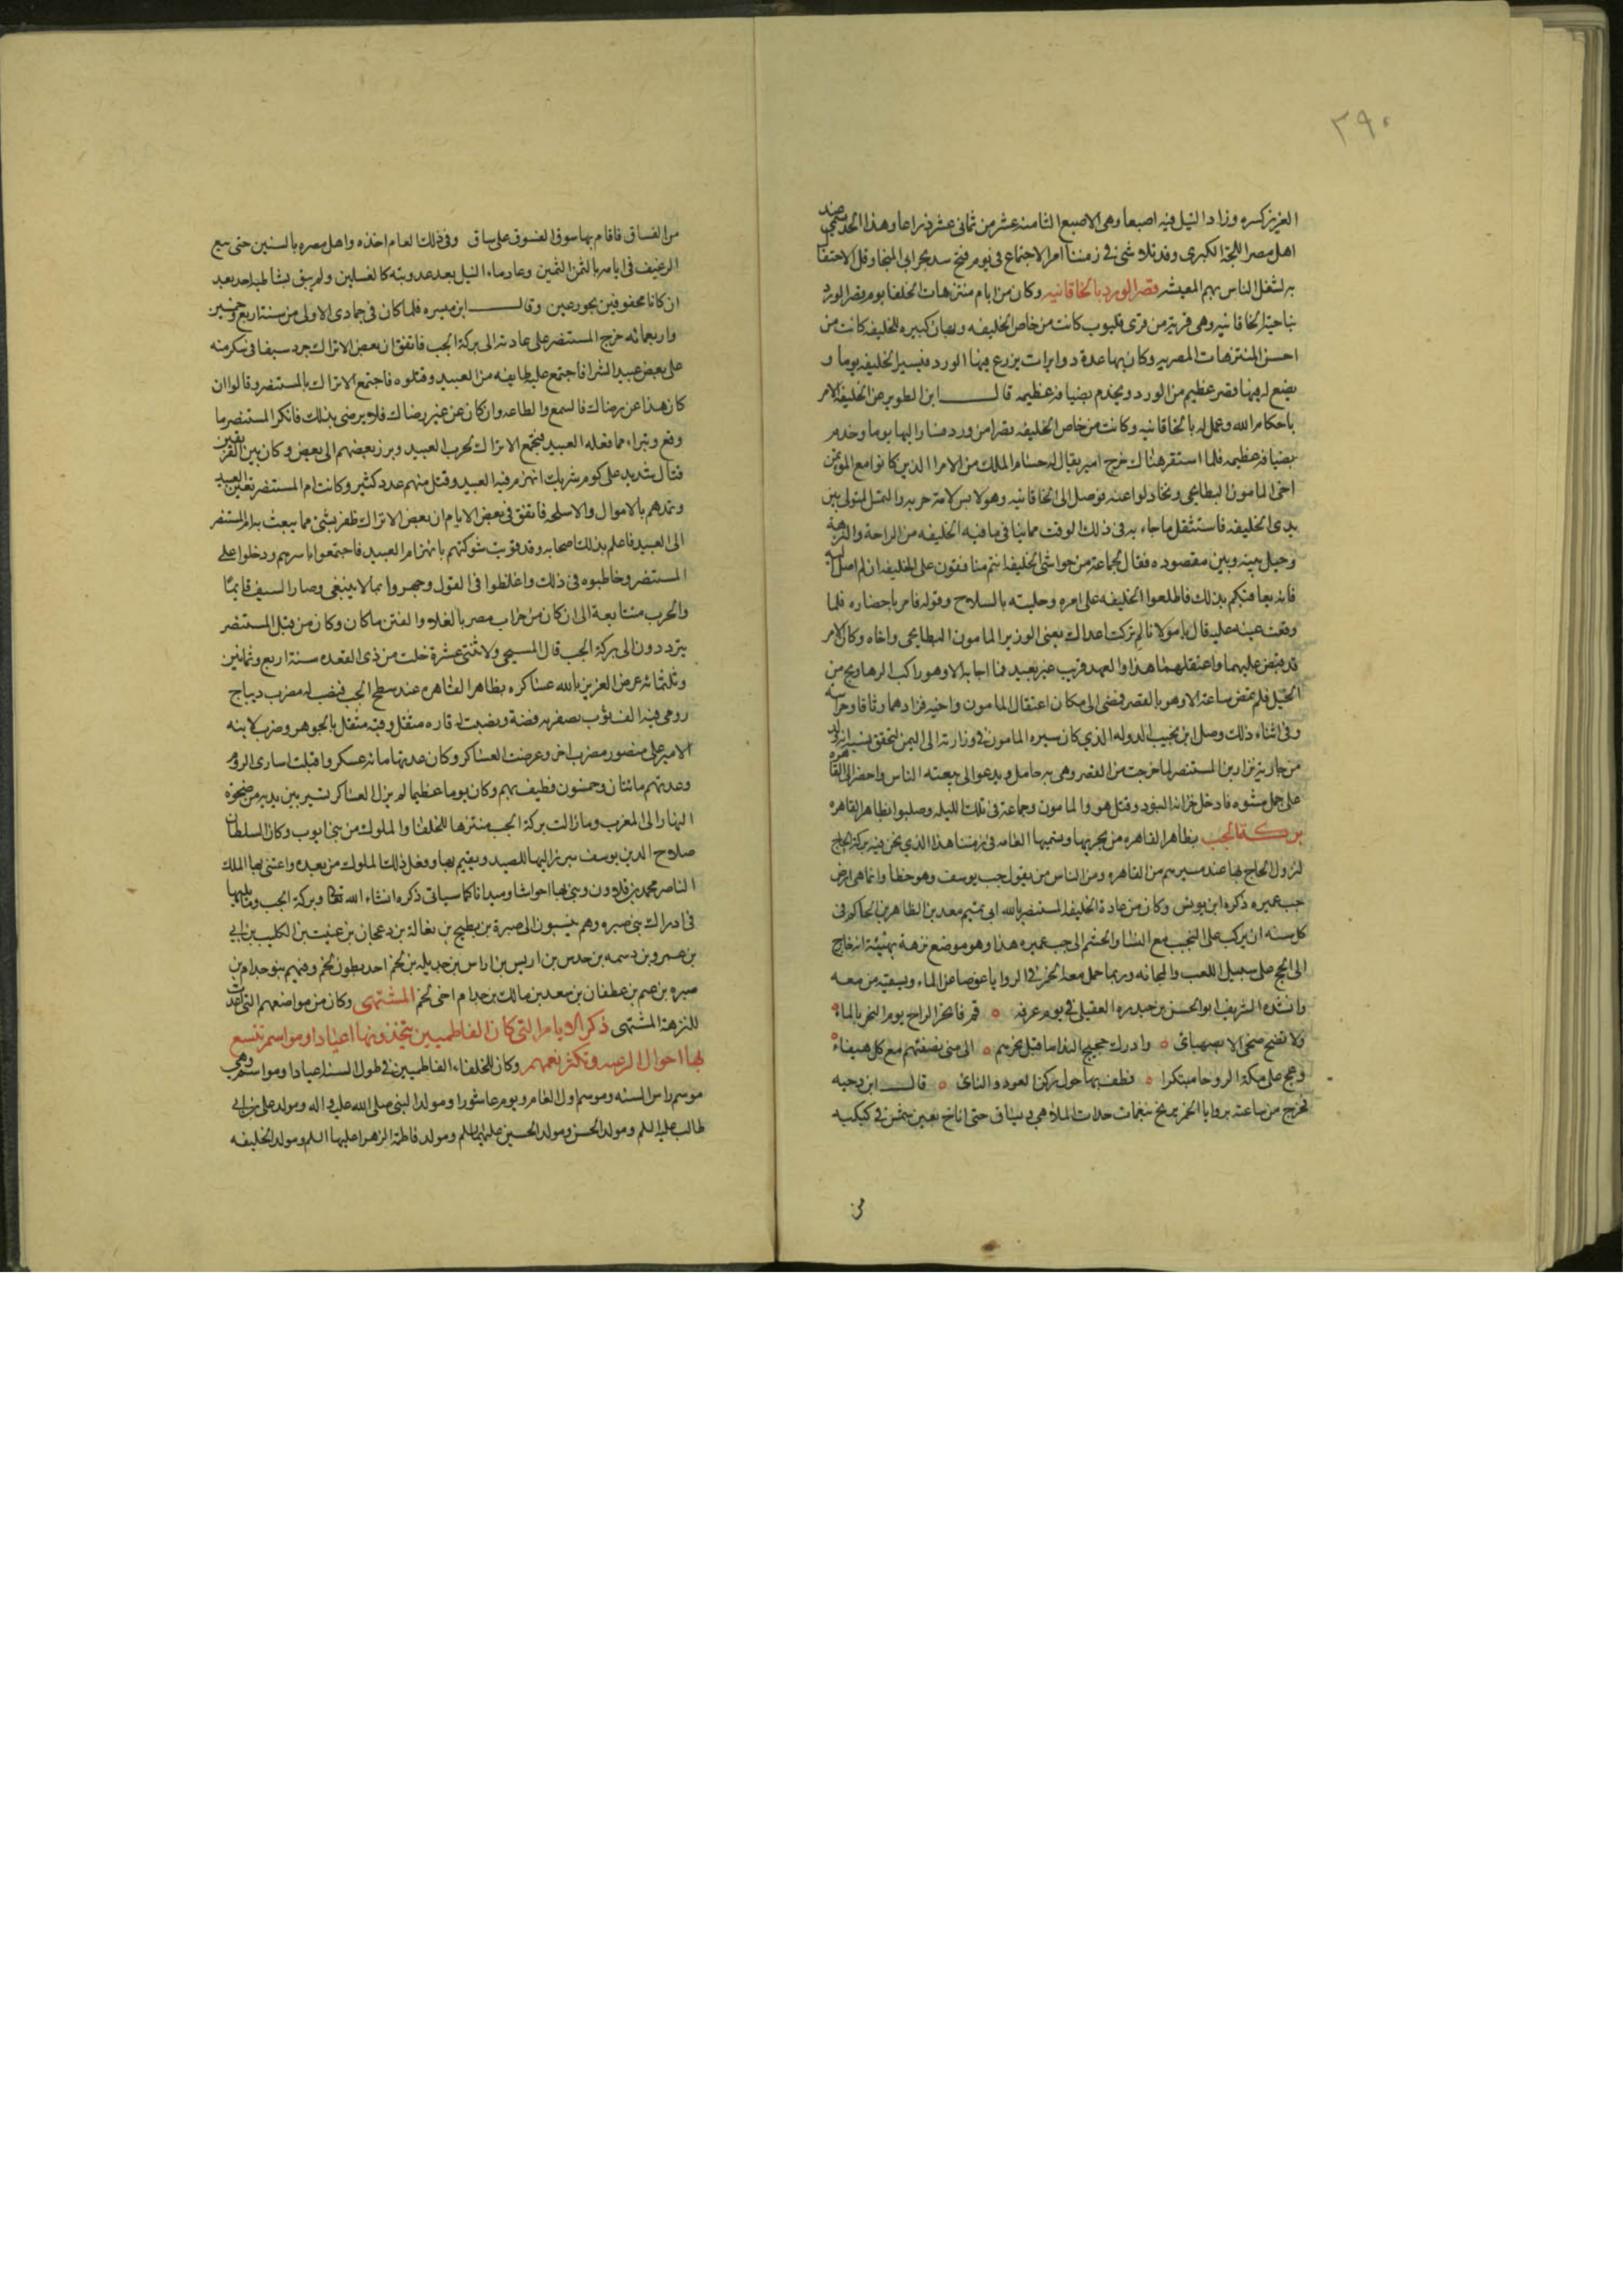 ٣٩٠
العزيز كسره وزاد النيل فيه اصبعا وهى الاصبع الثامنه عشر من ثمانى عشر ذراعا وهذا الحد يسمى عند
اهل مصر اللجة الكبرى وقد تلاشى فى زمننا امر الاجتماع فى يوم فتح سد بحر ابى المنجا وقل الاحتفال
به لشغل الناس بهم المعيشه قصر الورد بالخاقانيه وكان من ايام منتزهات الخلفا يوم قصر الورد
بناحية الخاقانيه وهى قرية من قرى قليوب كانت من خاص الخليفه وبها جنان كبيره للخليفه كانت من
احسن المنتزهات المصريه وكان بها عدة دوايرات يزرع فيها الورد فيسير الخليفه يوما و
يصنع له فيها قصر عظيم من الورد ويخدم بضيافه عظيمه قال ابن الطوير عن الخليفه الامر
باحكام الله وعمل له بالخاقانيه وكانت من خاص الخليفه قصرا من ورد فسار اليها يوما وخدم
بضيافه عظيمه فلما استقر هناك خرج امير يقال له حسام الملك من الامرا الذين كانوا مع المؤتمن
اخى المامون البطايحى وتخاذلوا عنه فوصل الى الخاقانيه وهو لابس لامة حربه والتمس المثول بين
يدى الخليفه فاستثقل ما جاء به فى ذلك الوقت مما ينافى ما فيه الخليفه من الراحة والنزهة
وحيل بينه وبين مقصوده فقال لجماعة من حواشى الخليفه انتم منافقون على الخليفه ان لم اصل اليه
فانه يعاقبكم بذلك فاطلعوا الخليفه على امره وحليته بالسلاح وقوله فامر باحضاره فلما
وقعت عينه عليه قال يا مولانا لم تركت اعداك يعنى الوزير المامون البطايحى واخاه وكان الامر
قد قبض عليهما واعتقلهما هذا والعهد قريب غير بعيد فما اجابه الا وهو راكب الرهاويج من
الخيل فلم تمض ساعة الا وهو بالقصر فمضى الى مكان اعتقال المامون واخيه فزادهما وثاقا وحراسه
وفى اثناء ذلك وصل ابن نجيب الدوله الذى كان سيره المامون فى وزارته الى اليمن لتحقق نسبه انه ولد
من جارية نزار بن المستنصر لما خرجت من القصر وهى به حامل ويدعو الى بيعته الناس واحضر الى القاهره
على جمل مشوه فادخل خزانة البنود وقتل هو والمامون وجماعة فى تلك الليله وصلبوا بظاهر القاهره
بركة الجب بظاهر القاهره من بحريها وتسميها العامه فى زمننا هذا الذى نحن فيه بركة الحاج
لنزول الحاج بها عند مسيرهم من القاهره ومن الناس من يقول جب يوسف وهو خطأ وانما هى ارض
جب عميره ذكره ابن يونس وكان من عادة الخليفه المستنصر بالله ابى تميم معد بن الظاهر بن الحاكم فى
كل سنه ان يركب على النجب مع النسا والحشم الى جب عميره هذا وهو موضع نزهة بهيئة انه خارج
الى الحج على سبيل اللعب والمجانه وربما حمل معه الخمر فى الروايا عوضا عن الماء ويسقيه من معه
وانشده الشريف ابو الحسن بن حيدره العقيلى فى يوم عرفه ٥ قم فانحر الراح يوم النحر بالماء ٥
ولا تضح ضحى الا بصهبائ ٥ وادرك حجيج الندامى قبل نفرهم ٥ الى منى بصفتهم مع كل هيفاء ٥
وعج على مكة الروحا مبتكرا ٥ وطف بها حول ركن العود والنائ ٥ قال ابن دحيه
فخرج من ساعته بروايا الخمر تزج بنغمات حداة الملاهى وتساق حتى اناخ بعين شمس فى كبكبه
من
من الفساق فاقام بها سوق الفسوق على ساق وفى ذلك العام اخذه واهل مصره بالسنين حتى بيع
الرغيف فى ايامه بالثمن الثمين وعاد ماء النيل بعد عذوبته كالغسلين ولم يبق بشاطيه احد بعد
ان كانا محفوفين بحور عين وقال ابن ميسره فلما كان فى جمادى الاولى من سنة اربع وخمسين
واربعمائه خرج المستنصر على عادته الى بركة الجب فاتفق ان بعض الاتراك جرد سيفا فى سكر منه
على بعض عبيد الشرا فاجتمع عليه طايفه من العبيد وقتلوه فاجتمع الاتراك بالمستنصر وقالوا ان
كان هذا عن رضاك فالسمع والطاعه وان كان عن غير رضاك فلا نرضى بذلك فانكر المستنصر ما
وقع وتبراء مما فعله العبيد فتجمع الاتراك لحرب العبيد وبرز بعضهم الى بعض وكان بين الفريقين
قتال شديد على كوم شريك انهزم فيه العبيد وقتل منهم عدد كثير وكانت ام المستنصر تعين العبيد
وتمدهم بالاموال والاسلحه فاتفق فى بعض الايام ان بعض الاتراك ظفر بشئ مما يبعث به ام المستنصر
الى العبيد فاعلم بذلك اصحابه وقد قويت شوكتهم بانهزام العبيد فاجتمعوا باسرهم ودخلوا على
المستنصر وخاطبوه فى ذلك واغلظوا فى القول وجهروا بما لا ينبغى وصار السيف قايما
والحرب متتابعة الى ان كان من خراب مصر بالغلا والفتن ما كان وكان من قبل المستنصر
يترددون الى بركة الجب قال المسبحى ولاثنتى عشرة خلت من ذى القعده سنة اربع وثمانين
وثلثمائه عرض العزيز بالله عساكره بظاهر القاهره عند سطح الجب فنصب له مضرب ديباج
رومى فيه الف ثوب بصفريه فضة ونصبت له فازه مثقل وقبه مثقل بالجوهر وضرب لابنه
الامير على منصور مضرب اخر وعرضت العساكر وكان عدتها مائه عسكر واقبلت اسارى الروم
وعدتهم مائتان وخمسون فطيف بهم وكان يوما عظيما لم يزل العساكر تسير بين يديه من ضحوة
النهار الى المغرب وما زالت بركة الجب منتزها للخلفا والملوك من بنى ايوب وكان السلطان
صلاح الدين يوسف يبرز اليها للصيد ويقيم بها وفعل ذلك الملوك من بعده واعتنى بها الملك
الناصر محمد بن قلاوون وبنى بها احواشا وميدانا كما سياتى ذكره انشاء الله تعالى وبركة الجب وما يليها
فى ادراك بنى صبره وهم ينسبون الى صبرة بن بطيح بن بغالة بن دعجان بن عنيث بن الكليب بن ابى
بن عمرو بن دسمه بن حدس بن اريس بن اراش بن جديله بن لخم احد بطون لخم وفيهم بنو جذام بن
صبره بن غنم بن عطفان بن سعد بن مالك بن حرام اخى لخم المشتهى وكان من مواضعهم التى اعدت
للنزهة المشتهى ذكر الايام التى كان الفاطميين يتخذونها اعيادا ومواسم تتسع
بها احوال الرعيه وتكثر نعمهم وكان للخلفاء الفاطميين فى طول السنه اعيادا ومواسم وهى
موسم راس السنه وموسم اول العام ويوم عاشورا ومولد النبى صلى الله عليه واله ومولد على بن ابى
طالب عليه السلم ومولد الحسن ومولد الحسين عليهما السلم ومولد فاطمة الزهرا عليها السلم ومولد الخليفه